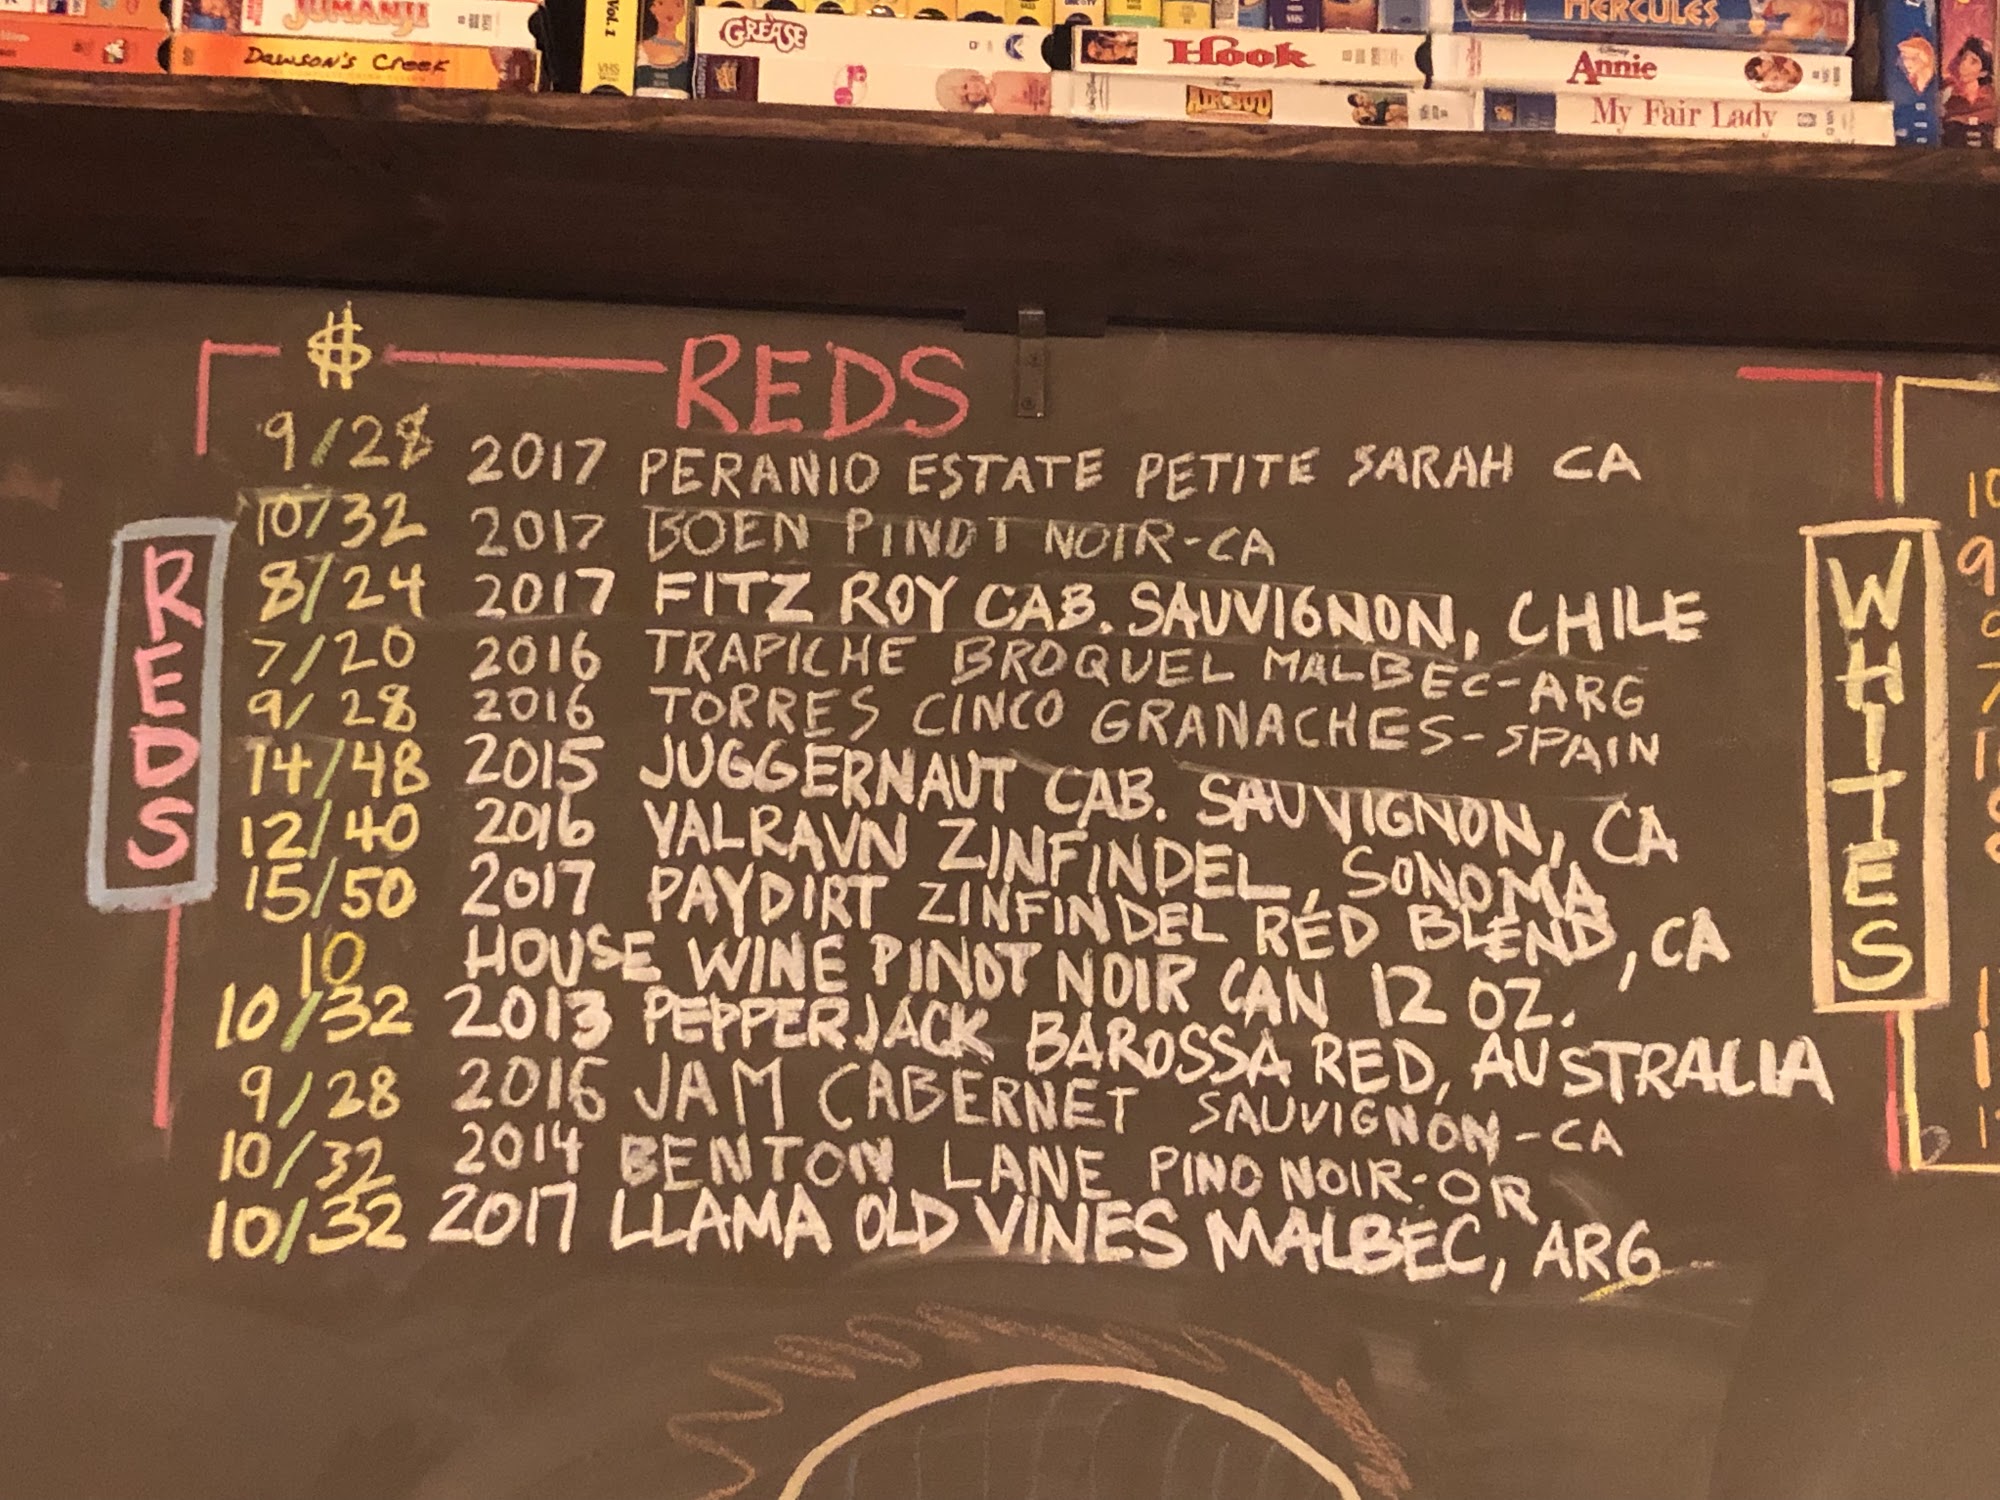 JUMANJI
Dawson's Creek
VOL. 2
VHS
GREASE
Hook
AIR BUD
HERCULES
Annie
My Fair Lady
$ REDS
9/28 2017 PERANIO ESTATE PETITE SARAH CA
10/32 2017 BOEN PINOT NOIR-CA
8/24 2017 FITZ ROY CAB. SAUVIGNON, CHILE
7/20 2016 TRAPICHE BROQUEL MALBEC-ARG
9/28 2016 TORRES CINCO GRANACHES-SPAIN
14/48 2015 JUGGERNAUT CAB. SAUVIGNON, CA
12/40 2016 VALRAVN ZINFINDEL, SONOMA
15/50 2017 PAYDIRT ZINFINDEL RED BLEND, CA
10 HOUSE WINE PINOT NOIR CAN 12 OZ.
10/32 2013 PEPPERJACK BAROSSA RED, AUSTRALIA
9/28 2016 JAM CABERNET SAUVIGNON-CA
10/32 2014 BENTON LANE PINO NOIR-OR
10/32 2017 LLAMA OLD VINES MALBEC, ARG
REDS
WHITES